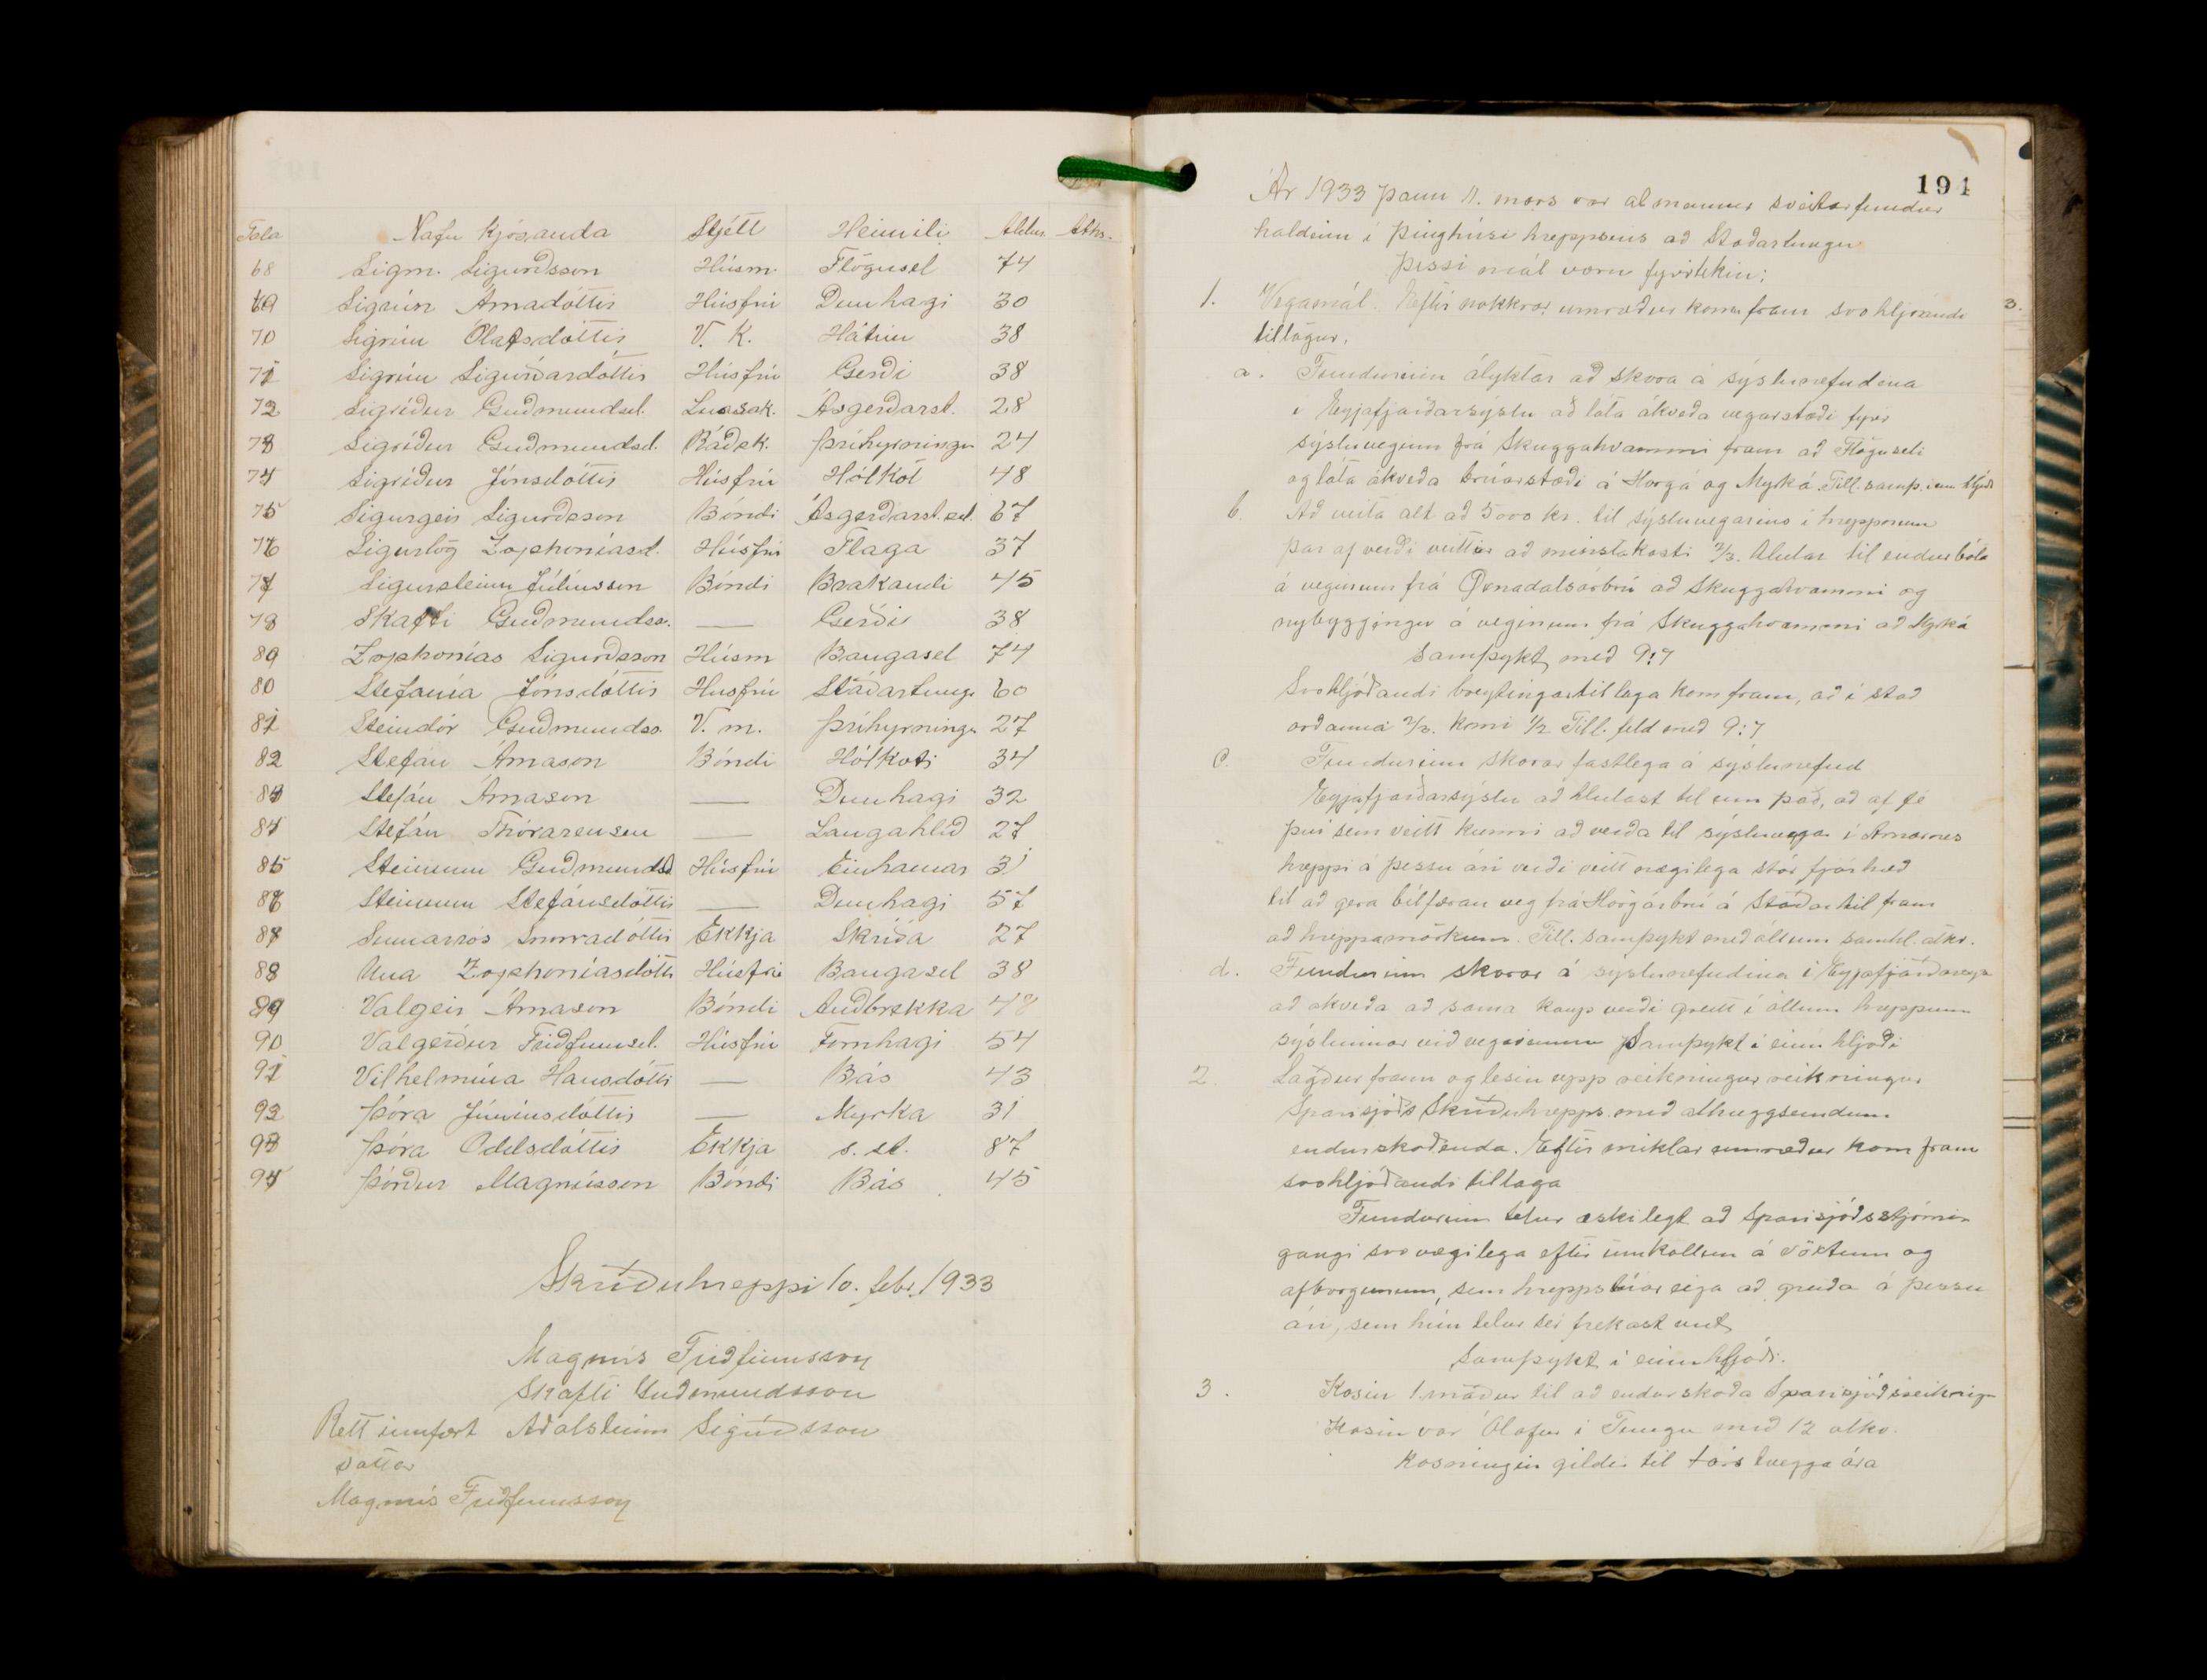 Tala Nafn kjósanda Stjétt Heimili Aldur Aths.
68 Sigm. Sigurðsson Húsm. Flögusel 74
69 Sigrún Árnadóttir Húsfrú Dunhagi 30
70 Sigrún Ólafsdóttir V. K. Hátún 38
71 Sigrún Sigurðardóttir Húsfrú Gerði 38
72 Sigríður Guðmundsd. Lausak. Ásgerðarst. 28
73 Sigríður Guðmundsd. Ráðsk. Þríhyrningur 24
74 Sigríður Jónsdóttir Húsfrú Hólkot 48
75 Sigurgeir Sigurðsson Bóndi Ásgerðarst.sel. 67
76 Sigurlög Zophoníasd. Húsfrú Flaga 37
77 Sigursteinn Júlíusson Bóndi Brakandi 45
78 Skafti Guðmundss. — Gerði 38
89 Zophonías Sigurðsson Húsm Baugasel 74
80 Stefanía Jónsdóttir Husfrú Staðartunga 60
81 Steindór Guðmundss. V. m. Þríhyrningur 27
82 Stefán Árnason Bóndi Hólkoti 34
83 Stefán Árnason — Dunhagi 32
84 Stefán Thórarensen — Langahlíð 27
85 Steinunn Guðmundsd Húsfrú Einhamar 31
86 Steinunn Stefánsdóttir — Dunhagi 57
87 Sumarrós Snorradóttir Ekkja Skriða 27
88 Una Zophoníasdóttir Húsfrú Baugasel 38
89 Valgeir Árnason Bóndi Auðbrekka 48
90 Valgerður Friðfinnsd. Húsfrú Fornhagi 54
91 Vilhelmína Hansdóttir — Bás 43
92 Þóra Júníusdóttir — Myrká 31
93 Þóra Oddsdóttir Ekkja s. st. 87
94 Þórður Magnússon Bóndi Bás 45
Skriðuhreppi 10. febr. 1933
Magnús Friðfinnsson
Skafti Guðmundsson
Rétt innfært Aðalsteinn Sigurðsson
Vottar
Magnús Friðfinnsson
194
Ár 1933 þann 11. mars var almennur sveitarfundur
haldinn í þinghúsi hreppsins að Staðartungu
Þessi mál voru fyrirtekin:
1. Vegamál. Eftir nokkrar umræður komu fram svohljóðandi
tillögur.
a. Fundurinn ályktar að skora á sýslunefndina
í Eyjafjarðarsýslu að láta ákveða vegarstæði fyrir
sýsluveginn frá Skuggahvammi fram að Flöguseli
og láta ákveða brúarstæði á Hörgá og Myrká. Till. samþ. í einu hljóði
b. Að veita alt að 5000 kr. til sýsluvegarins í hreppnum
þar af verði veittir að minstakosti 2/3. hlutar til endurbóta
á veginum frá Öxnadalsárbrú að Skuggahvammi og
nýbyggingu á veginum frá Skuggahvammi að Myrká
Samþykt með 9:7
Svohljóðandi breytingartillaga kom fram, að í stað
orðanna 2/3. komi 1/2 Till. feld með 9:7
C. Fundurinn skorar fastlega á sýslunefnd
Eyjafjarðarsýslu að hlutast til um það, að af fé
því sem veitt kunni að verða til sýsluvega í Arnarnes
hreppi á þessu ári verði veitt nægilega stór fjárhæð
til að gera bílfæran veg frá Hörgárbrú á Staðarhil fram
að hreppamörkum. Till. samþykt með öllum samhl. atkv.
d. Fundurinn skorar á sýslunefndina í Eyjafjarðarsýs
að ákveða að sama kaup verði greitt í öllum hreppum
sýslunnar við vegavinnu Samþykt í einu hljóði
2. Lagður fram og lesin upp reikningur reikningur
Sparisjóðs Skriðuhrepps með athugasemdum
endurskoðenda. Eftir miklar umræður kom fram
svohljóðandi tillaga
Fundurinn telur æskilegt að Sparisjóðsstjórnin
gangi svo vægilega eftir innköllun á vöxtum og
afborgunum, sem hreppsbúar eiga að greiða á þessu
ári, sem hún telur sér frekast unt
Samþykt í einu hljóði.
3. Kosin 1. maður til að endurskoða Sparisjóðsreikninga
Kosin var Ólafur í Tungu með 12 atkv.
Kosningin gildir til tveggja ára
3.